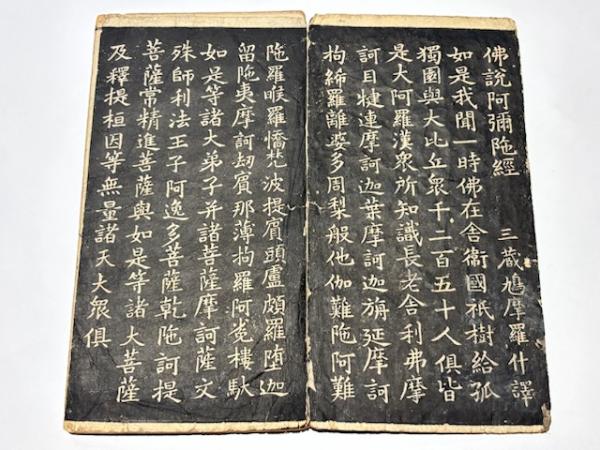 佛說阿彌陁經
三藏鳩摩羅什譯
如是我聞一時佛在舍衛國祇樹給孤
獨園與大比丘眾千二百五十人俱皆
是大阿羅漢眾所知識長老舍利弗摩
訶目犍連摩訶迦葉摩訶迦旃延摩訶
拘絺羅離婆多周梨般他伽難陁阿難
陁羅睺羅憍梵波提賓頭盧頗羅堕迦
留陁夷摩訶劫賓那薄拘羅阿㝹樓馱
如是等諸大弟子并諸菩薩摩訶薩文
殊師利法王子阿逸多菩薩乾陁訶提
菩薩常精進菩薩與如是等諸大菩薩
及釋提桓因等無量諸天大眾俱